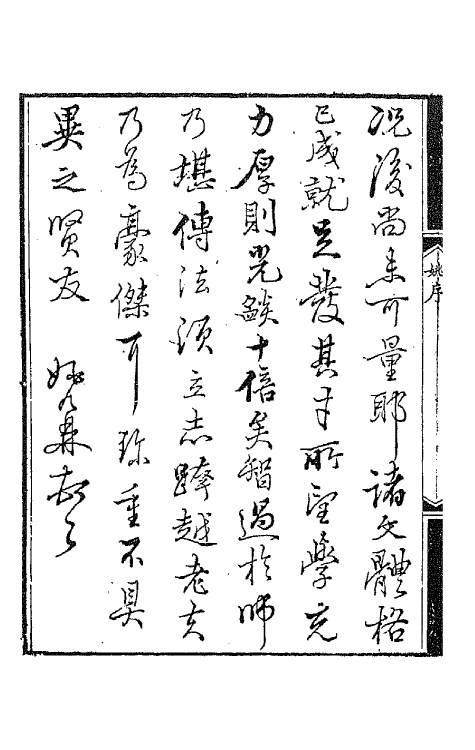 況後尚未可量耶諸文體格
已成就足發其才所望學充
力厚則光燄十倍矣智過於師
乃堪傳法須立志跨越老夫
乃為豪傑耳珍重不具
異之賢友　姚鼐頓首
姚序